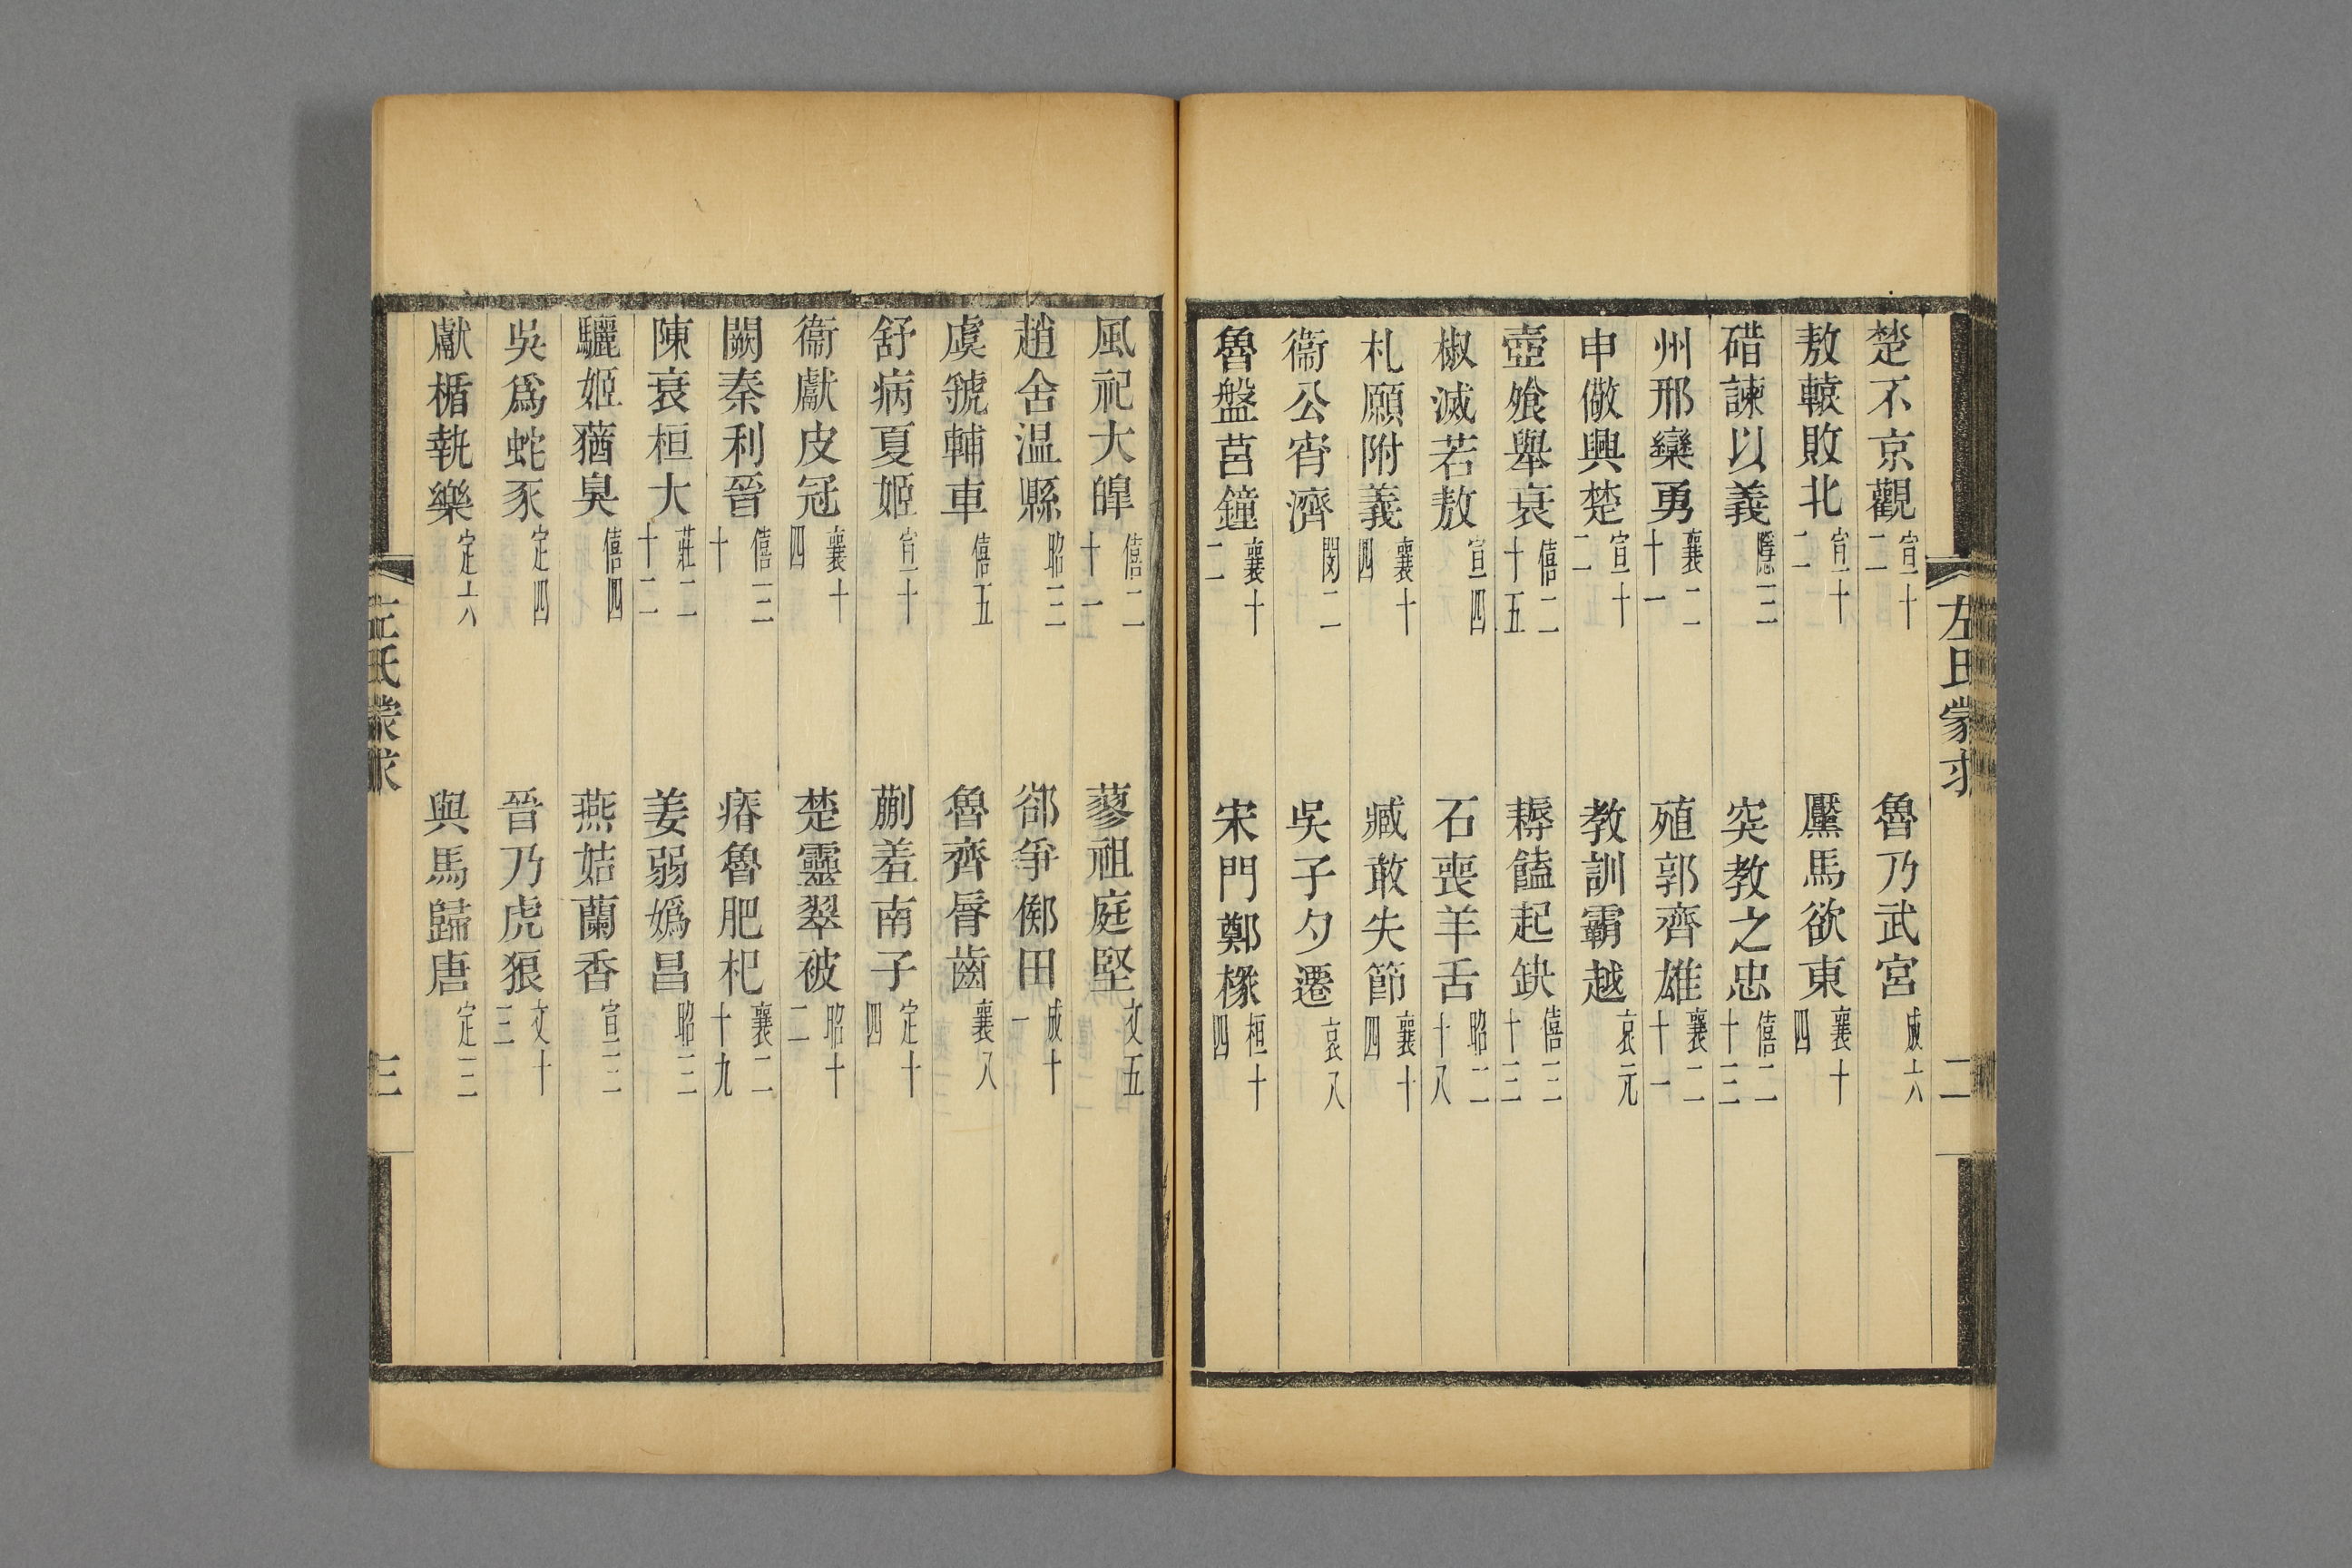 左氏蒙求 二
楚不京觀 宣十二 魯乃武宮 成六
敖轅敗北 宣十二 黶馬欲東 襄十四
碏諫以義 隱三 突教之忠 僖二十三
州邢欒勇 襄二十一 殖郭齊雄 襄二十一
申儆興楚 宣十二 教訓霸越 哀元
壺飱舉衰 僖二十五 耨饁起缺 僖三十三
椒滅若敖 宣四 石喪羊舌 昭二十八
札願附義 襄十四 臧敢失節 襄十四
衞公宵濟 閔二 吳子夕遷 哀八
魯盤莒鐘 襄十二 宋門鄭椽 桓十四
風祀大皥 僖二十一 蓼祖庭堅 文五
趙舍温縣 昭三 郤爭鄇田 成十一
虞虢輔車 僖五 魯齊脣齒 襄八
舒病夏姬 宣十 蒯羞南子 定十四
衞獻皮冠 襄十四 楚靈翠被 昭十二
闕秦利晉 僖三十 瘠魯肥杞 襄二十九
陳衰桓大 莊二十二 姜弱嬀昌 昭三
驪姬蕕臭 僖四 燕姞蘭香 宣三
吳爲蛇豕 定四 晉乃虎狼 文十三
獻楯執樂 定六 與馬歸唐 定三
左氏蒙求 三